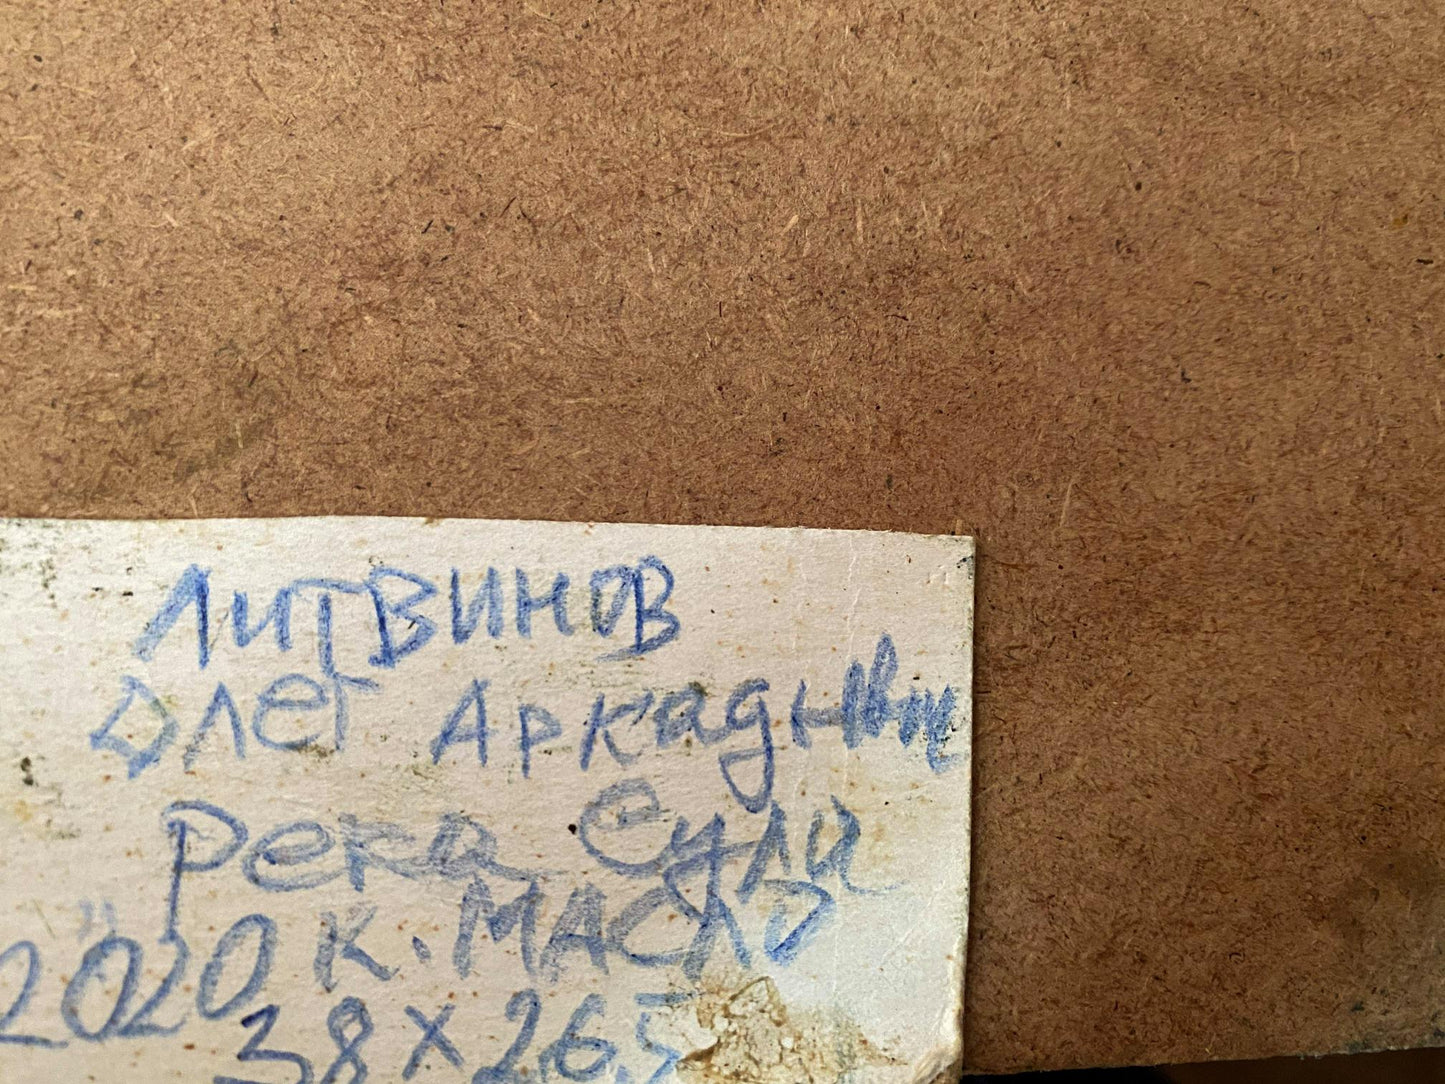 ЛИТВИНОВ
Олег Аркадьевич
река Сула
2020 К. МАСЛО
38 x 26,5